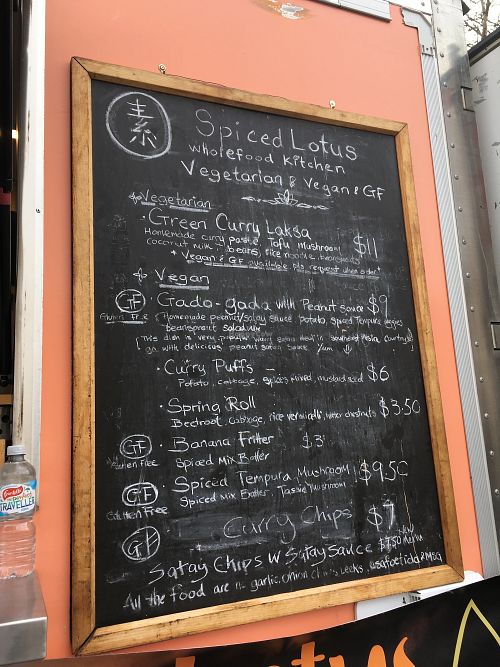 素
Spiced Lotus
Wholefood Kitchen
Vegetarian & Vegan & GF
Vegetarian
· Green Curry Laksa $11
Homemade curry paste, Tofu mushroom
coconut milk, beans, rice noodle, beansprouts
* Vegan & GF available pls request when order *
Vegan
GF · Gado-gado with Peanut sauce $9
Gluten Free Homemade peanut/satay sauce potato, spiced Tempura veggies
beansprout salad
(This dish is very popular in southeast Asia
go with delicious peanut satay sauce Yum
· Curry Puffs - $6
Potato, cabbage, mixed, mustard seed
· Spring Roll $3.50
Beetroot, Cabbage, rice vermicelli, water chestnuts
GF · Banana Fritter $3
Gluten Free Spiced Mix Batter
GF · Spiced Tempura Mushroom $9.50
Gluten Free Spiced Mix Batter Tassie Mushroom
GF · Curry Chips $7
Satay Chips W Satay Sauce $7.50
All the food are no garlic, onion chives, Leeks, asafoetida & MSG
TRAVELLER